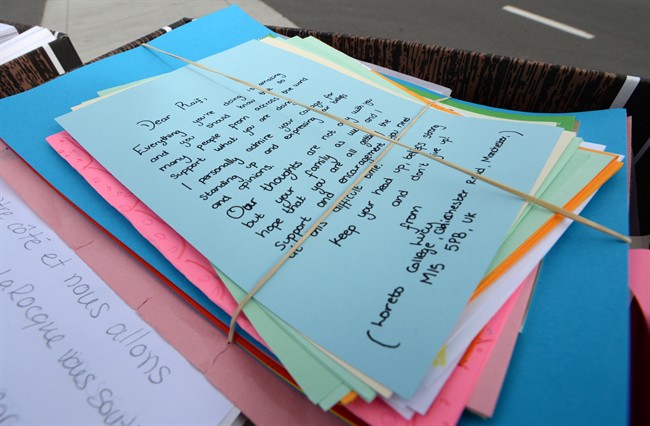 Dear Raif,
Everything you're doing is amazing
and you should know that so
many people from across the world
support what you are doing.
I personally admire your courage for
standing up and expressing your beliefs
and opinions.
Our thoughts are not only with you
but your family as well and I
hope that you are all getting the
support and encouragement you need
at this difficult time.
Keep your head up, beliefs strong
and don't give up!
from
(Loreto College, Chichester Road, Manchester)
M15 5PB, UK
côté et nous allons
LaRocque vous